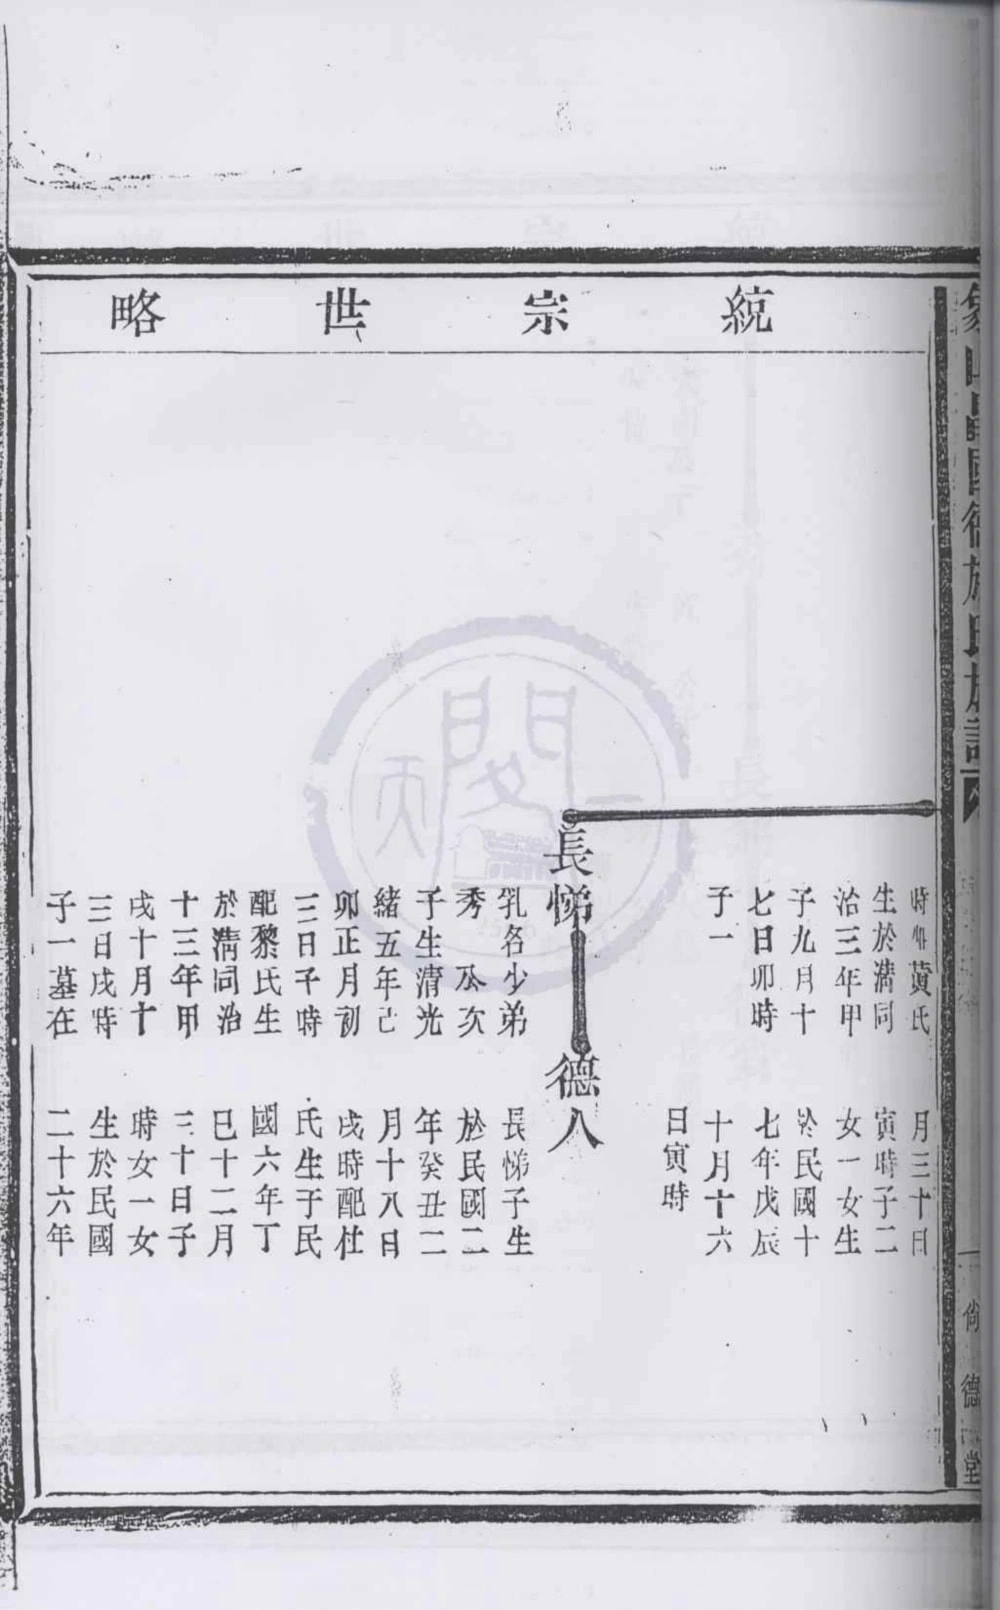 統宗世略
時配黃氏
生於淸同
治三年甲
子九月十
七日卯時
子一
月三十日
寅時子二
女一女生
於民國十
七年戊辰
十月十六
日寅時
長悌
乳名少弟
秀 公次
子生清光
緒五年己
卯正月初
三日子時
配黎氏生
於淸同治
十三年甲
戌十月十
三日戌時
子一墓在
德八
長悌子生
於民國二
年癸丑二
月十八日
戌時配杜
氏生于民
國六年丁
巳十二月
三十日子
時女一女
生於民國
二十六年
尙德堂